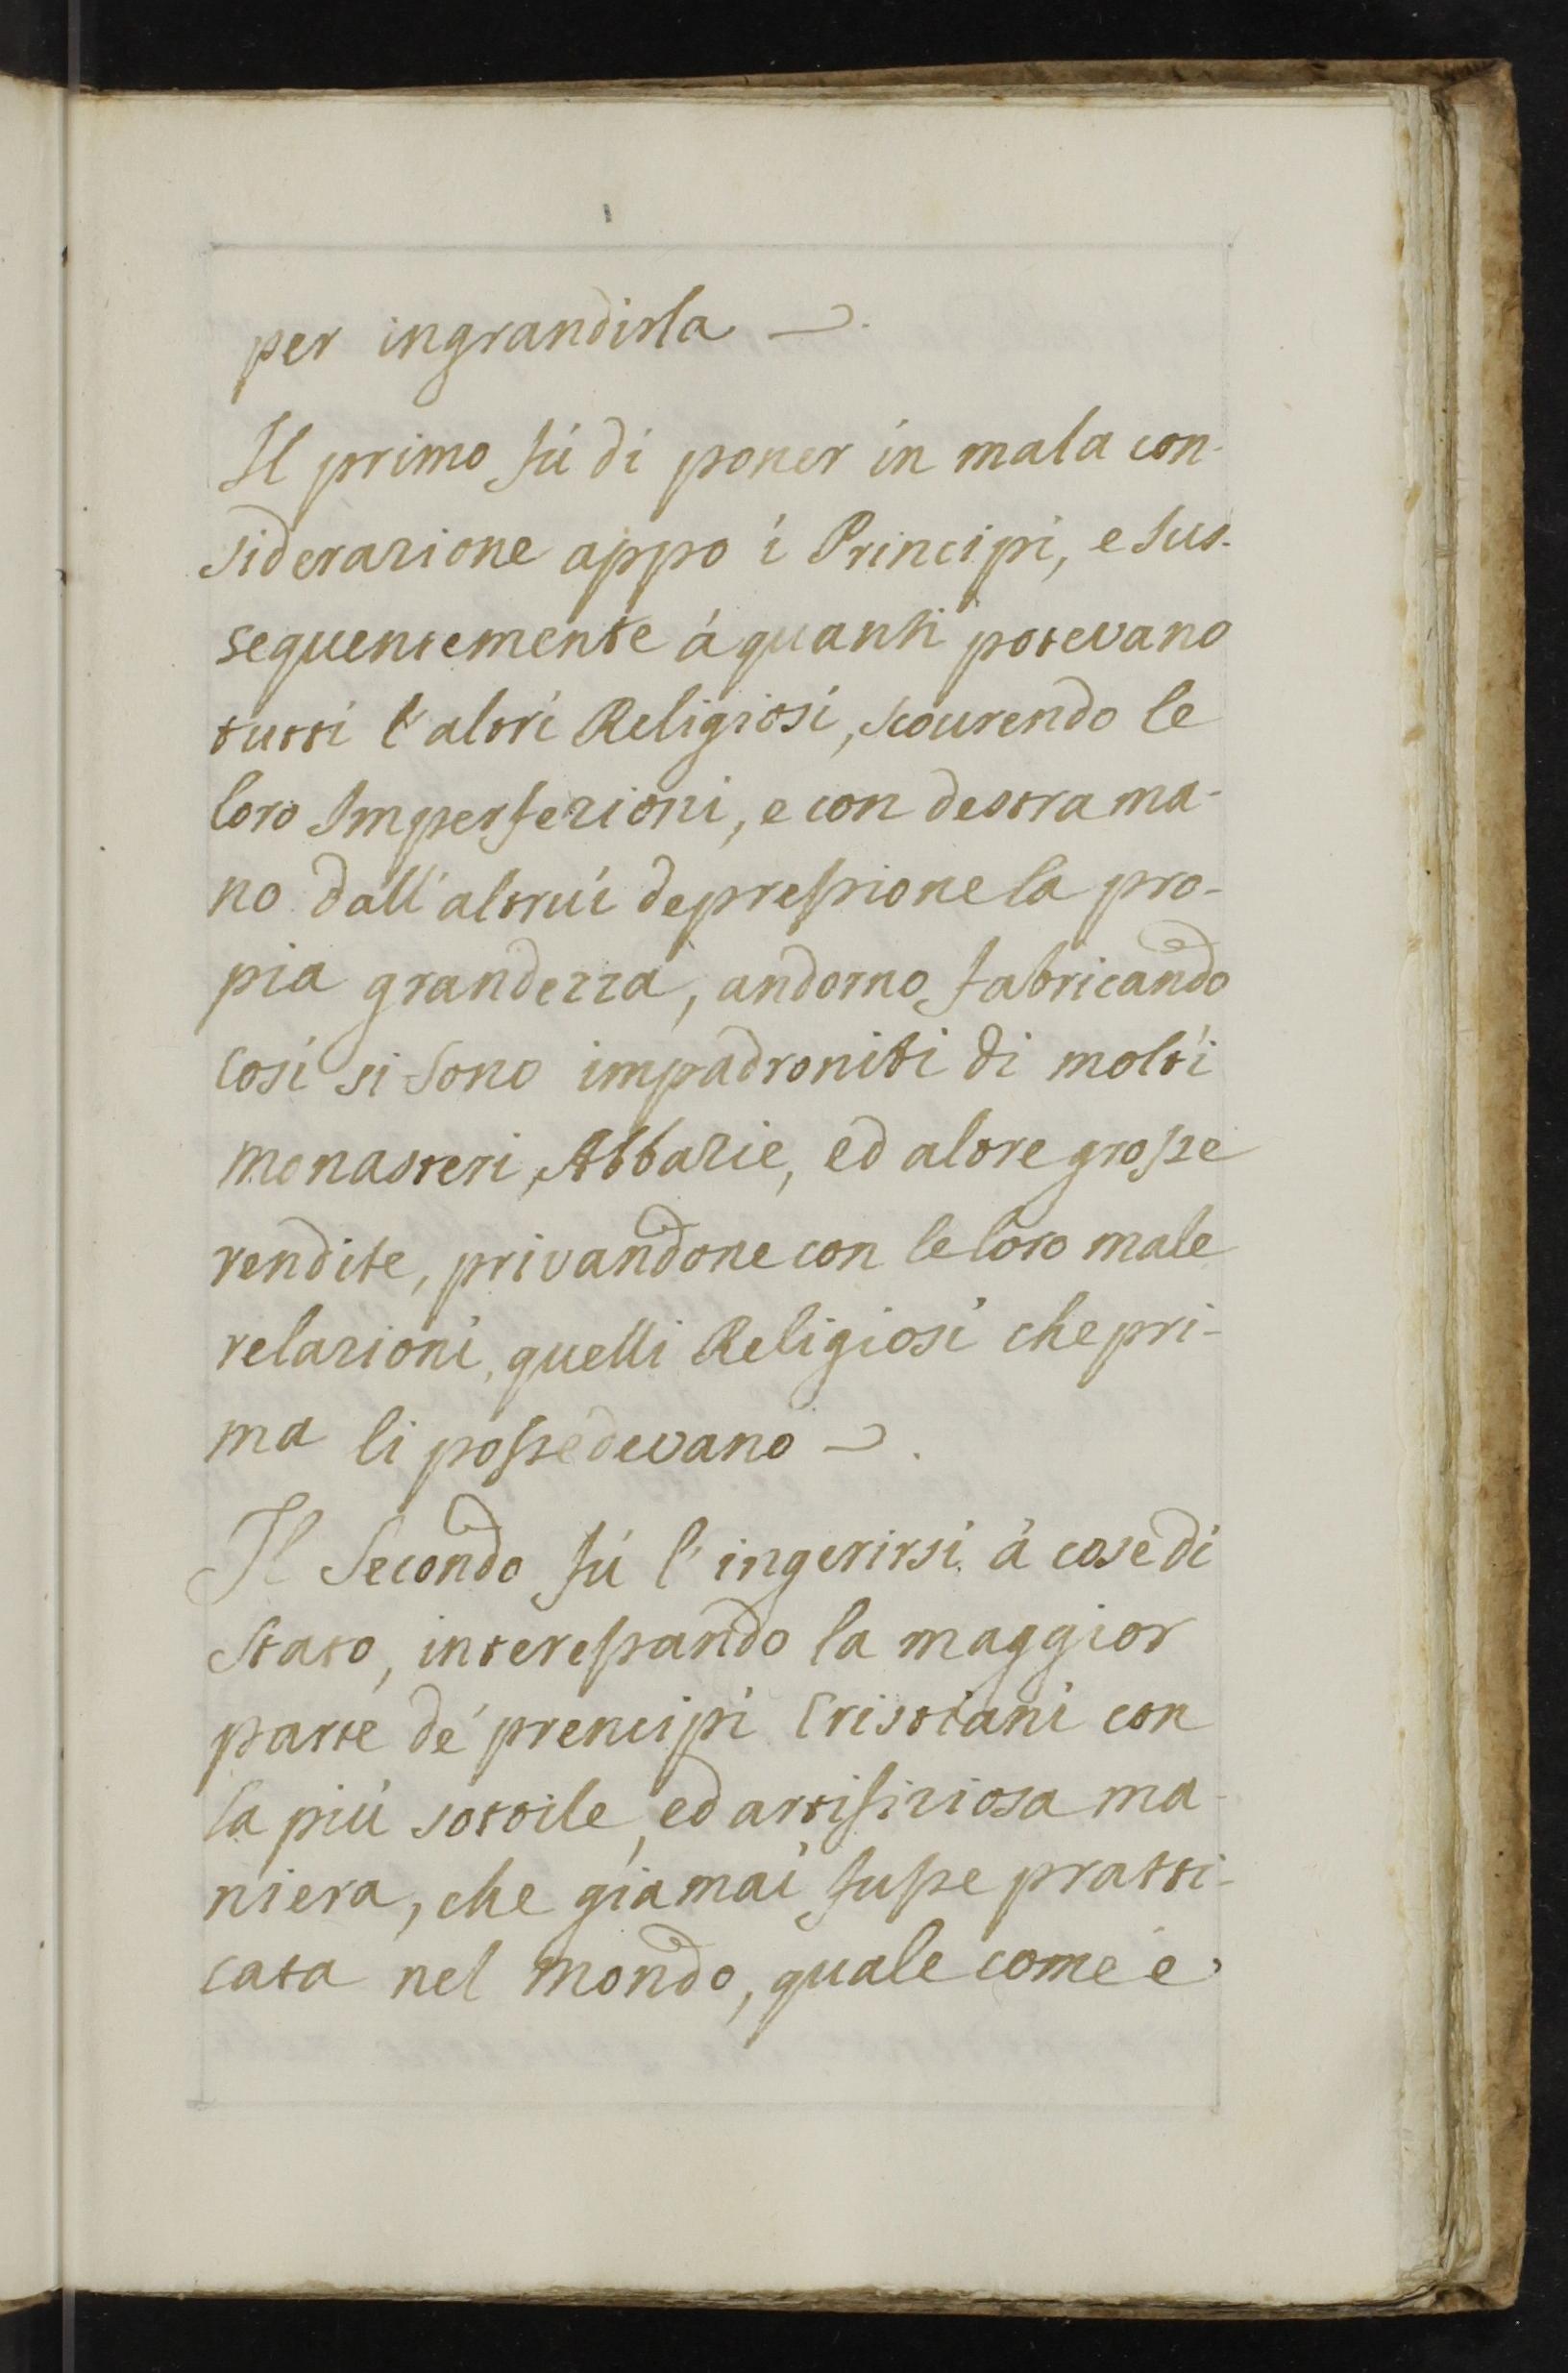 per ingrandirla
Il primo fù di poner in mala con-
siderazione appo i Principi, e sus-
seguentemente à quanti potevano
tutti l'altri Religiosi, scourendo le
loro Imperfezioni, e con destra ma-
no dall'altrui depressione la pro-
pia grandezza, andorno fabricando
così si sono impadroniti di molti
monasteri, Abbazie, ed altre grosse
rendite, privandone con le loro male
relazioni, quelli Religiosi che pri-
ma li possedevano
Il Secondo fù l'ingerirsi à cose di
Stato, interessando la maggior
parte de' prencipi Cristiani con
la più sottile, ed artifiziosa ma-
niera, che giamai fusse pratti-
cata nel mondo, quale come è